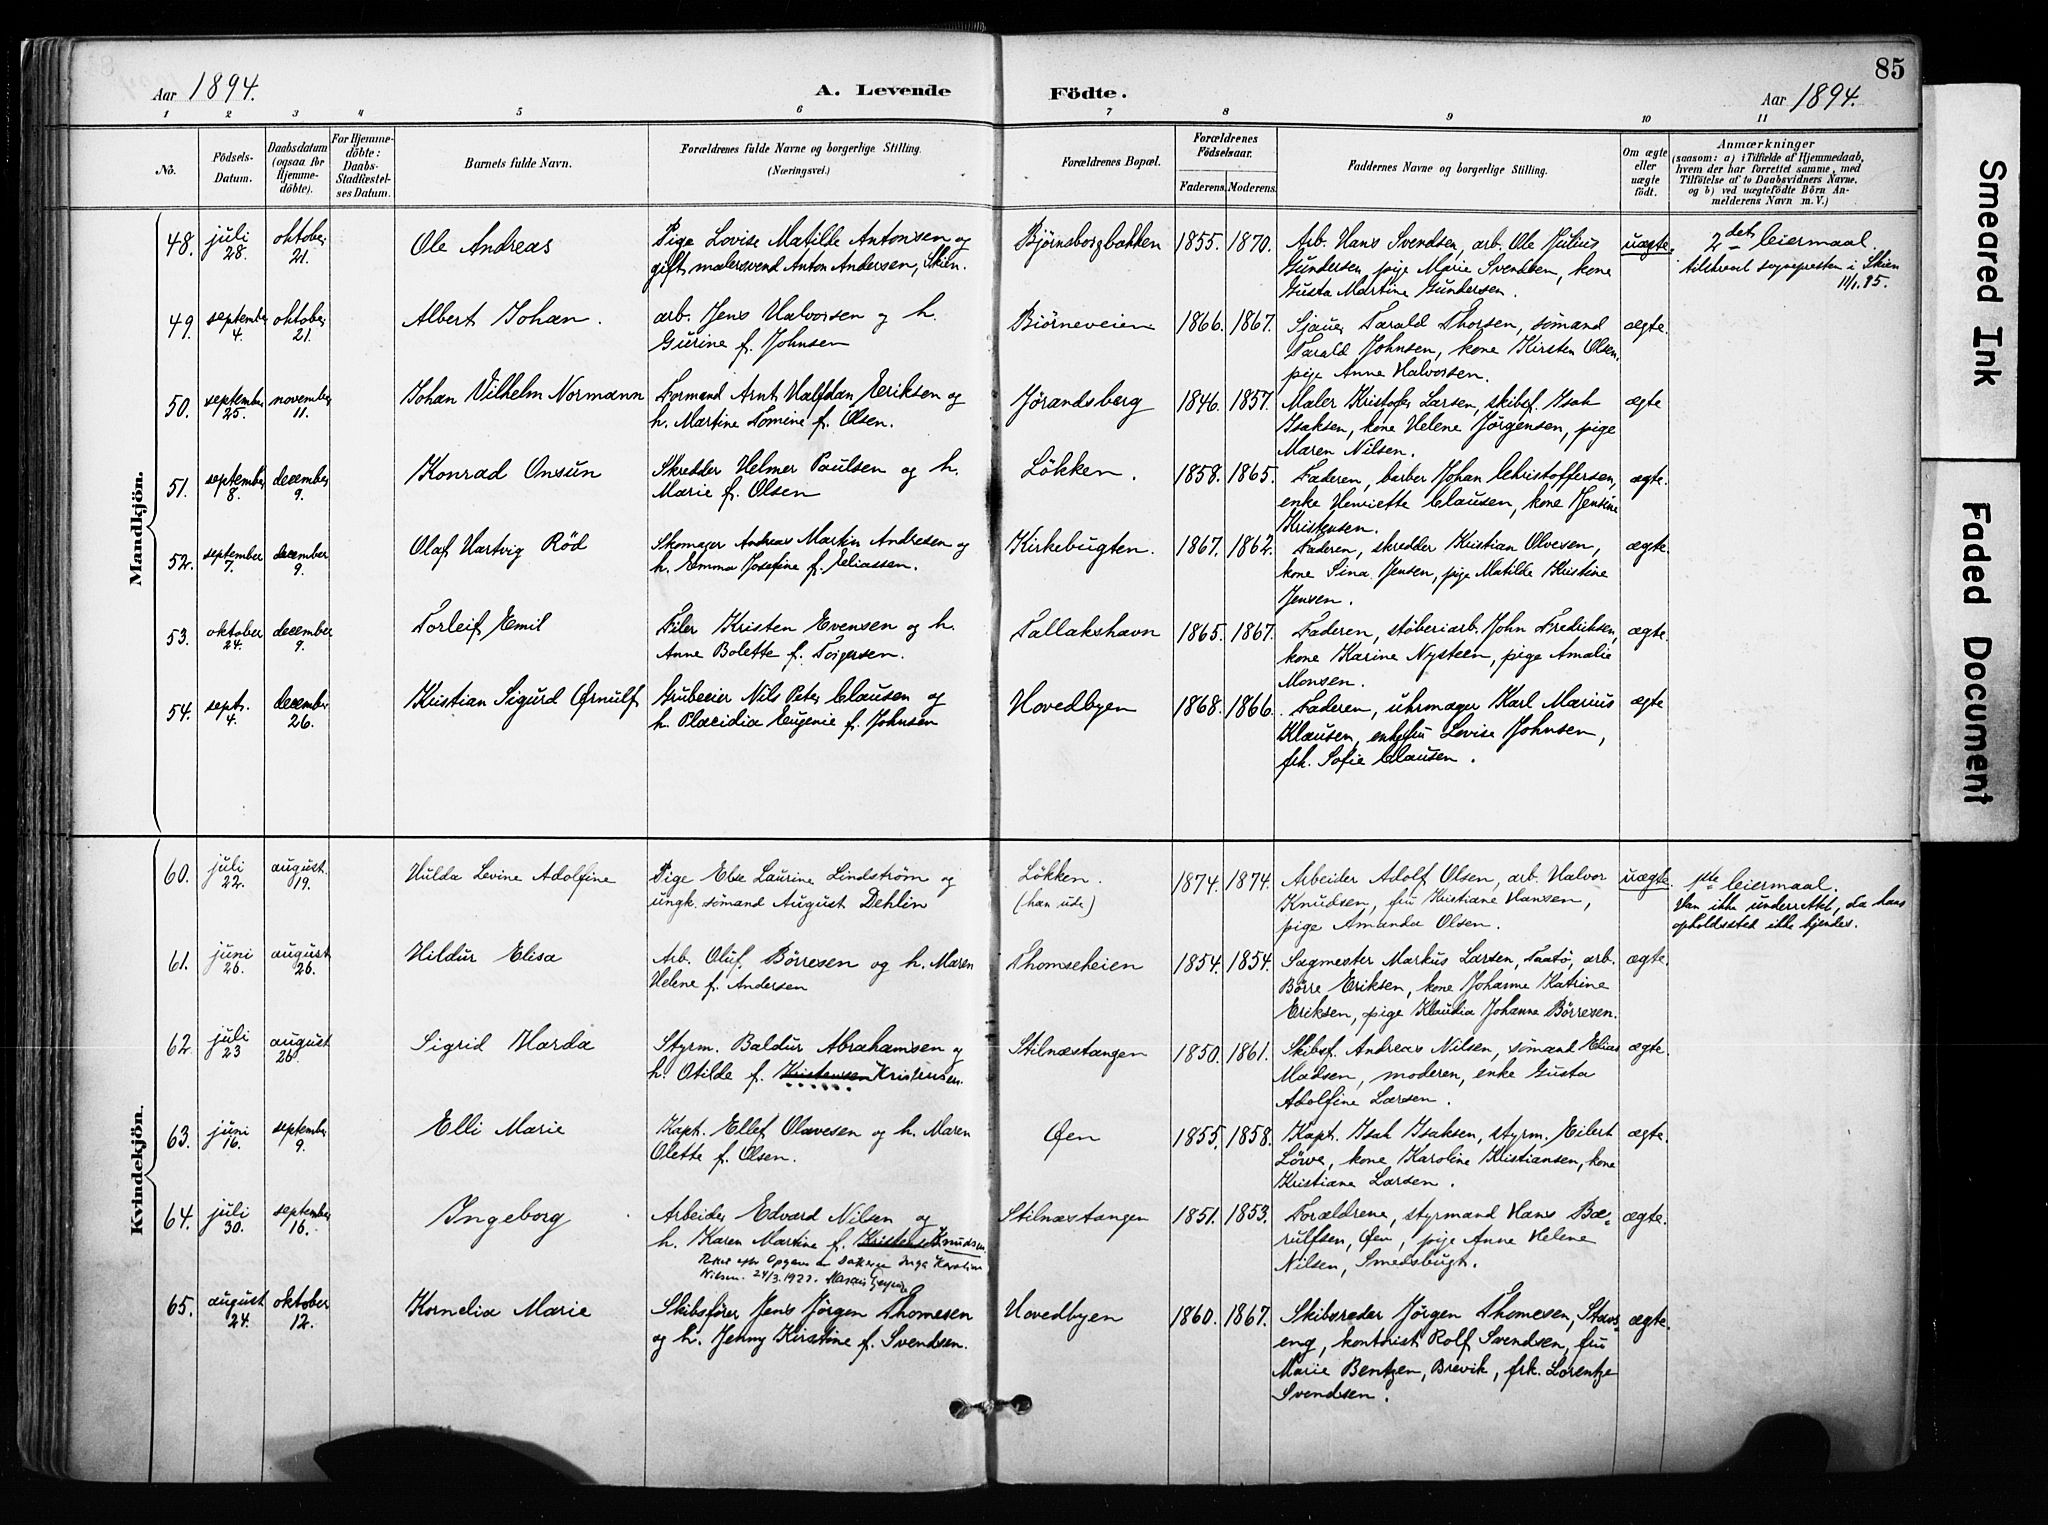 85
Aar 1894.
A. Levende
Födte.
Aar 1894.
1 2 3 4 5 6 7 8 9 10 11
No.
Födsels-Datum.
Daabsdatum (ogsaa for Hjemme-döbte).
For Hjemme-döbte: Daabs-Stadfæstel-ses Datum.
Barnets fulde Navn.
Forældrenes fulde Navne og borgerlige Stilling.
(Næringsvei.)
Forældrenes Bopæl.
Forældrenes Födselsaar.
Faderens. Moderens.
Faddernes Navne og borgerlige Stilling.
Om ægte eller uægte födt.
Anmærkninger
(saasom: a) i Tilfælde af Hjemmedaab,
hvem der har forrettet samme, med
Tilföielse af to Daabsvidners Navne.
og b) ved uægtefödte Börn An-
melderens Navn m. V.)
Mandkjön.
48. juli 28. oktober 21. Ole Andreas Pige Lovise Matilde Antonsen og Bjørnsborgbakken 1855. 1870. Arb. Hans Svendsen, arb. Ole Julius uægte. 2det leiermaal.
gift malersvend Anton Andersen, Skien. Gundersen, pige Marie Svendsen, kone sognepresten i Skien
Gusta Martine Gundersen. 11/1.95.
49. september 4. oktober 21. Albert Johan. arb. Jens Halvorsen og h. Bjørneveien 1866. 1867. Sjauer Tarald Thorsen, sømand ægte.
Gurine f. Johnsen Tarald Johnsen, kone Kirsten Olsen.
pige Anne Halvorsen.
50. september 25. november 11. Johan Vilhelm Normann Formand Arnt Halfdan Eriksen og Jørandsberg 1846. 1857. Maler Kristofer Larsen, skibsf. Isak ægte
h. Martine Tomine f. Olsen. Isaksen, kone Helene Jørgensen, pige
Maren Nilsen.
51. september 8. december 9. Konrad Onsun Skredder Helmer Paulsen og h. Løkken. 1858. 1865. Faderen, barber Johan Christoffersen, ægte.
Marie f. Olsen enke Henriette Clausen, kone Jensine
Kristensen.
52. september 7. december 9. Olaf Hartvig Rød Skomager Andreas Martin Andresen og Kirkebugten. 1867. 1862. Faderen, skredder Kristian Olvesen, ægte.
h. Emma Josefine f. Eliassen. kone Sina Jensen, pige Matilde Kristine
Jensen.
53. oktober 24. december 9. Torleif Emil Filer Kristen Evensen og h. Tallakshavn 1865. 1867. Faderen, støberiarb. John Fredriksen, ægte.
Anne Bolette f. Torgersen. kone Karine Nysteen, pige Amalie
Monsen.
54. sept. 4. december 26. Kristian Sigurd Ørnulf Grubeeier Nils Peter Clausen og Hovedbyen 1868. 1866. Faderen, uhrmager Karl Marius ægte
h. Placidia Eugenie f. Johnsen Klausen, enkefru Lovise Johnsen,
frk. Sofie Clausen.
Kvindekjön.
60. juli 22. august. 19. Hulda Levine Adolfine Pige Else Laurine Lindstrøm og Løkken. 1874. 1874. Arbeider Adolf Olsen, arb. Halvor uægte. 1ste leiermaal.
ungk. sømand August Dehlin (han ude) Knudsen, fru Kristiane Hansen, Han ikke underrettet, da hans
pige Amanda Olsen. opholdssted ikke kjendes.
61. juni 26. august 26. Hildur Elisa Arb. Oluf Børresen og h. Maren Thomseheien 1854. 1854. Sagmester Markus Larsen, Taatø, arb. ægte.
Helene f. Andersen Børre Eriksen, kone Johanne Katrine
Eriksen, pige Klaudia Johanne Børresen.
62. juli 23 august 26. Sigrid Harda Styrm. Baldur Abrahamsen og Stilnæstangen 1850. 1861. Skibsf. Andreas Nilsen, sømand Elias ægte.
h. Otilde f. Kristensen Kristensen. Madsen, moderen, enke Gusta
Adolfine Larsen.
63. juni 16. september 9. Elli Marie Kapt. Ellef Olavesen og h. Maren Øen 1855. 1858. Kapt. Isak Isaksen, styrm. Eilert ægte.
Olette f. Olsen. Løwe, kone Karoline Kristiansen, kone
Kristiane Larsen.
64. juli 30. september 16. Ingeborg Arbeider Edvard Nilsen og Stilnæstangen 1851. 1853. Forældrene, styrmand Hans Bæ- ægte.
h. Karen Martine f. Knudsen. rulfsen, Øen, pige Anne Helene
Inga Karoline Nilsen, Smedsbugt.
Nilsen. 24/3.1922.
65. august 24. oktober 12. Kornelia Marie Skibsfører Jens Jørgen Thomesen Hovedbyen 1860. 1867. Skibsreder Jørgen Thomesen, Stavs- ægte.
og h. Jenny Kirstine f. Svendsen. eng, kontorist Rolf Svendsen, fru
Marie Bentzen, Brevik, frk. Lorentze
Svendsen.
Smeared Ink
Faded Document